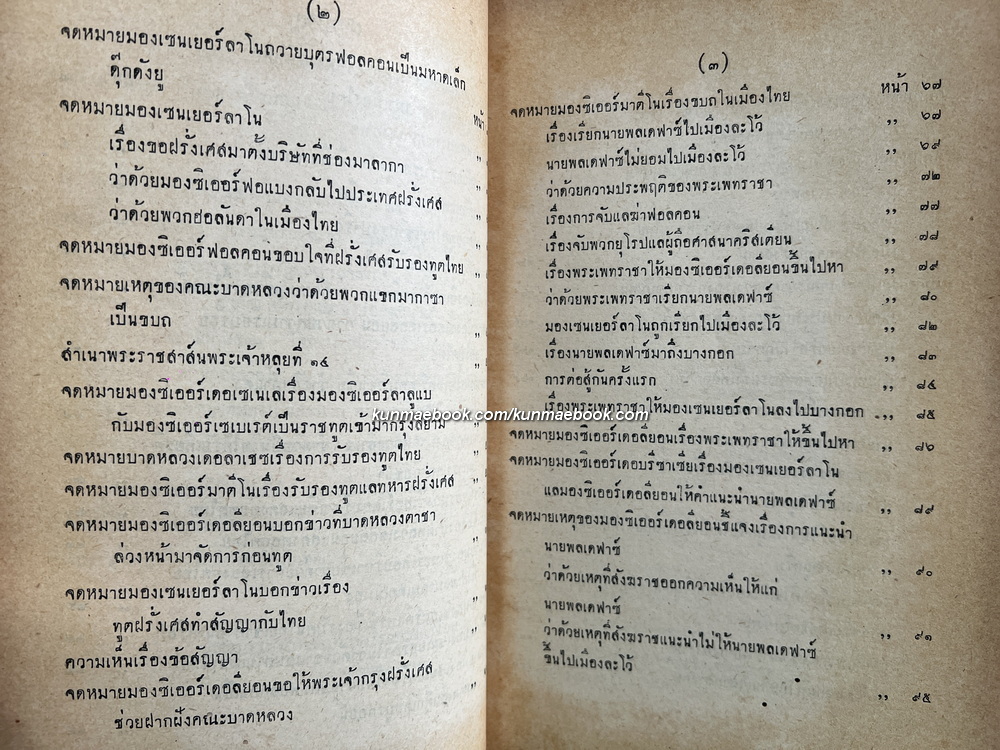 (๒)
จดหมายมองเซนเยอร์ลาโนถวายบุตรฟอลคอนเป็นมหาดเล็ก
ดุ๊กดังยู
หน้า
จดหมายมองเซนเยอร์ลาโน
เรื่องขอฝรั่งเศสมาตั้งบริษัทที่ช่องมาลากา ,,
ว่าด้วยมองซิเออร์ฟอแบงกลับไปประเทศฝรั่งเศส ,,
ว่าด้วยพวกฮอลันดาในเมืองไทย ,,
จดหมายมองซิเออร์ฟอลคอนขอบใจที่ฝรั่งเศสรับรองทูตไทย ,,
จดหมายเหตุของคณะบาดหลวงว่าด้วยพวกแขกมากาซา
เป็นขบถ ,,
สำเนาพระราชสาส์นพระเจ้าหลุยที่ ๑๔ ,,
จดหมายมองซิเออร์เดอเซเนเลเรื่องมองซิเออร์ลาลูแบ
กับมองซิเออร์เซเบเร์ต์เป็นราชทูตเข้ามากรุงสยาม ,,
จดหมายบาดหลวงเดอลาเชซเรื่องการรับรองทูตไทย ,,
จดหมายมองซิเออร์มาตีโนเรื่องรับรองทูตแลทหารฝรั่งเศส ,,
จดหมายมองซิเออร์เดอลียอนบอกข่าวที่บาดหลวงตาชา
ล่วงหน้ามาจัดการก่อนทูต ,,
จดหมายมองเซนเยอร์ลาโนบอกข่าวเรื่อง
ทูตฝรั่งเศสทำสัญญากับไทย ,,
ความเห็นเรื่องข้อสัญญา ,,
จดหมายมองซิเออร์เดอลียอนขอให้พระเจ้ากรุงฝรั่งเศส
ช่วยฝากฝังคณะบาดหลวง ,,
(๓)
จดหมายมองซิเออร์มาตีโนเรื่องขบถในเมืองไทย หน้า ๖๗
เรื่องเรียกนายพลเดฟาซ์ไปเมืองละโว้ ,, ๖๗
นายพลเดฟาซ์ไม่ยอมไปเมืองละโว้ ,, ๖๙
ว่าด้วยความประพฤติของพระเพทราชา ,, ๗๒
เรื่องการจับแลฆ่าฟอลคอน ,, ๗๗
เรื่องจับพวกยุโรปแลผู้ถือศาสนาคริสเตียน ,, ๗๘
เรื่องพระเพทราชาให้มองซิเออร์เดอลียอนขึ้นไปหา ,, ๗๙
ว่าด้วยพระเพทราชาเรียกนายพลเดฟาซ์ ,, ๘๐
มองเซนเยอร์ลาโนถูกเรียกไปเมืองละโว้ ,, ๘๒
เรื่องนายพลเดฟาซ์มาถึงบางกอก ,, ๘๓
การต่อสู้กันครั้งแรก ,, ๘๔
เรื่องพระเพทราชาให้มองเซนเยอร์ลาโนลงไปบางกอก ,, ๘๕
จดหมายมองซิเออร์เดอลียอนเรื่องพระเพทราชาให้ขึ้นไปหา ,, ๘๖
จดหมายมองซิเออร์เดอบรีซาเซียเรื่องมองเซนเยอร์ลาโน
แลมองซิเออร์เดอลียอนให้คำแนะนำนายพลเดฟาซ์ ,, ๘๙
จดหมายเหตุของมองซิเออร์เดอลียอนชี้แจงเรื่องการแนะนำ
นายพลเดฟาซ์ ,, ๙๐
ว่าด้วยเหตุที่สังฆราชออกความเห็นให้แก่
นายพลเดฟาซ์ ,, ๙๑
ว่าด้วยเหตุที่สังฆราชแนะนำไม่ให้นายพลเดฟาซ์
ขึ้นไปเมืองละโว้ ,, ๙๕
kunmaebook.com/kunmaebook.com